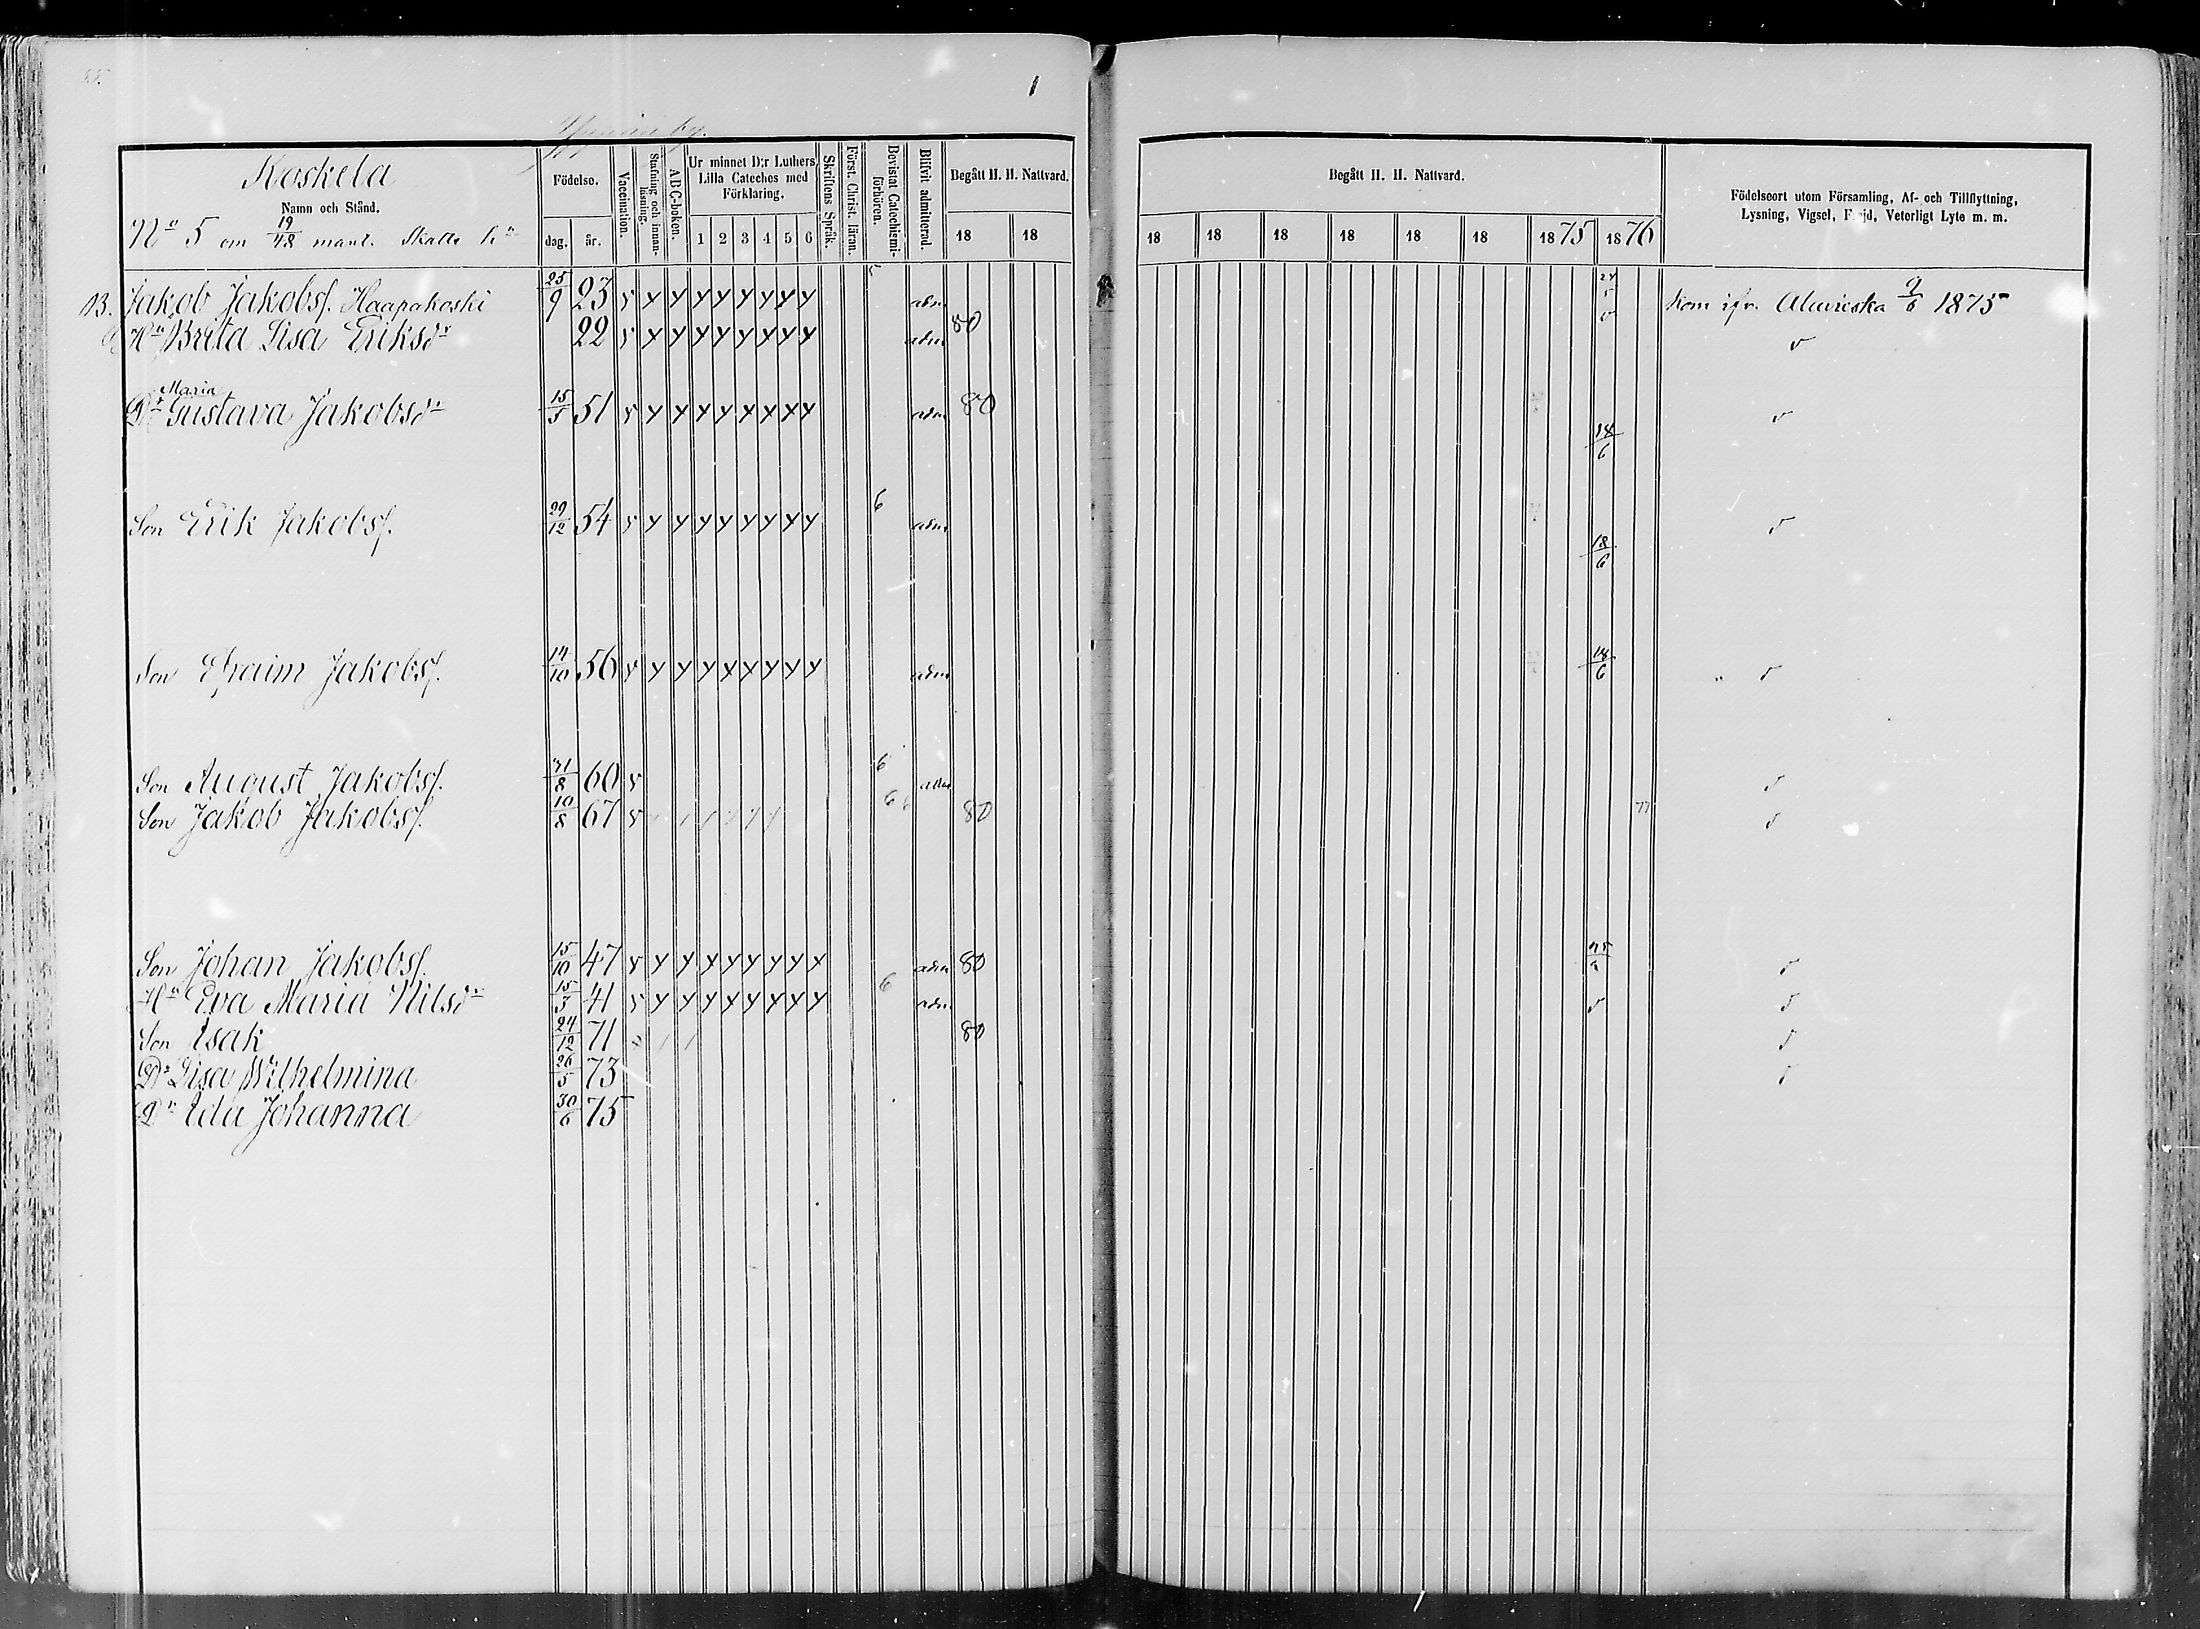 by.
Koskela
Namn och Stånd.
No 5 om 19/48 mant. Skatte
Födelse.
dag. år.
Vaccination.
Stafning och innanläsning.
ABC-boken.
Ur minnet D:r Luthers Lilla Cateches med Förklaring.
1 2 3 4 5 6
Skriftens Språk.
Först. Christ. läran.
Bevistat Catechismiförhören.
Blifvit admitterad.
Begått H. H. Nattvard.
18 18
Begått H. H. Nattvard.
18 18 18 18 18 18 1875 1876
Födelseort utom Församling, Af- och Tillflyttning, Lysning, Vigsel, Frejd, Veterligt Lyte m. m.
B. Jakob Jakobss. Haapakoski 25/9 23 adm Kom ifr. Alavieska 9/6 1875
Hu Brita Lisa Eriksdr 22 adm 80
Maria
Dr Gustava Jakobsdr 15/5 51 adm 80 18/6
Son Erik Jakobss. 29/12 54 6 adm 18/6
Son Efraim Jakobss. 14/10 56 adm 18/6
Son August Jakobss. 31/8 60 6 adm
Son Jakob Jakobss. 10/8 67 6 80 77
Son Johan Jakobss. 15/10 47 adm 80
Hu Eva Maria Nilsdr 15/3 41 6 adm
Son Isak 24/12 71 80
Dr Lisa Wilhelmina 26/5 73
Dr Ida Johanna 30/6 75